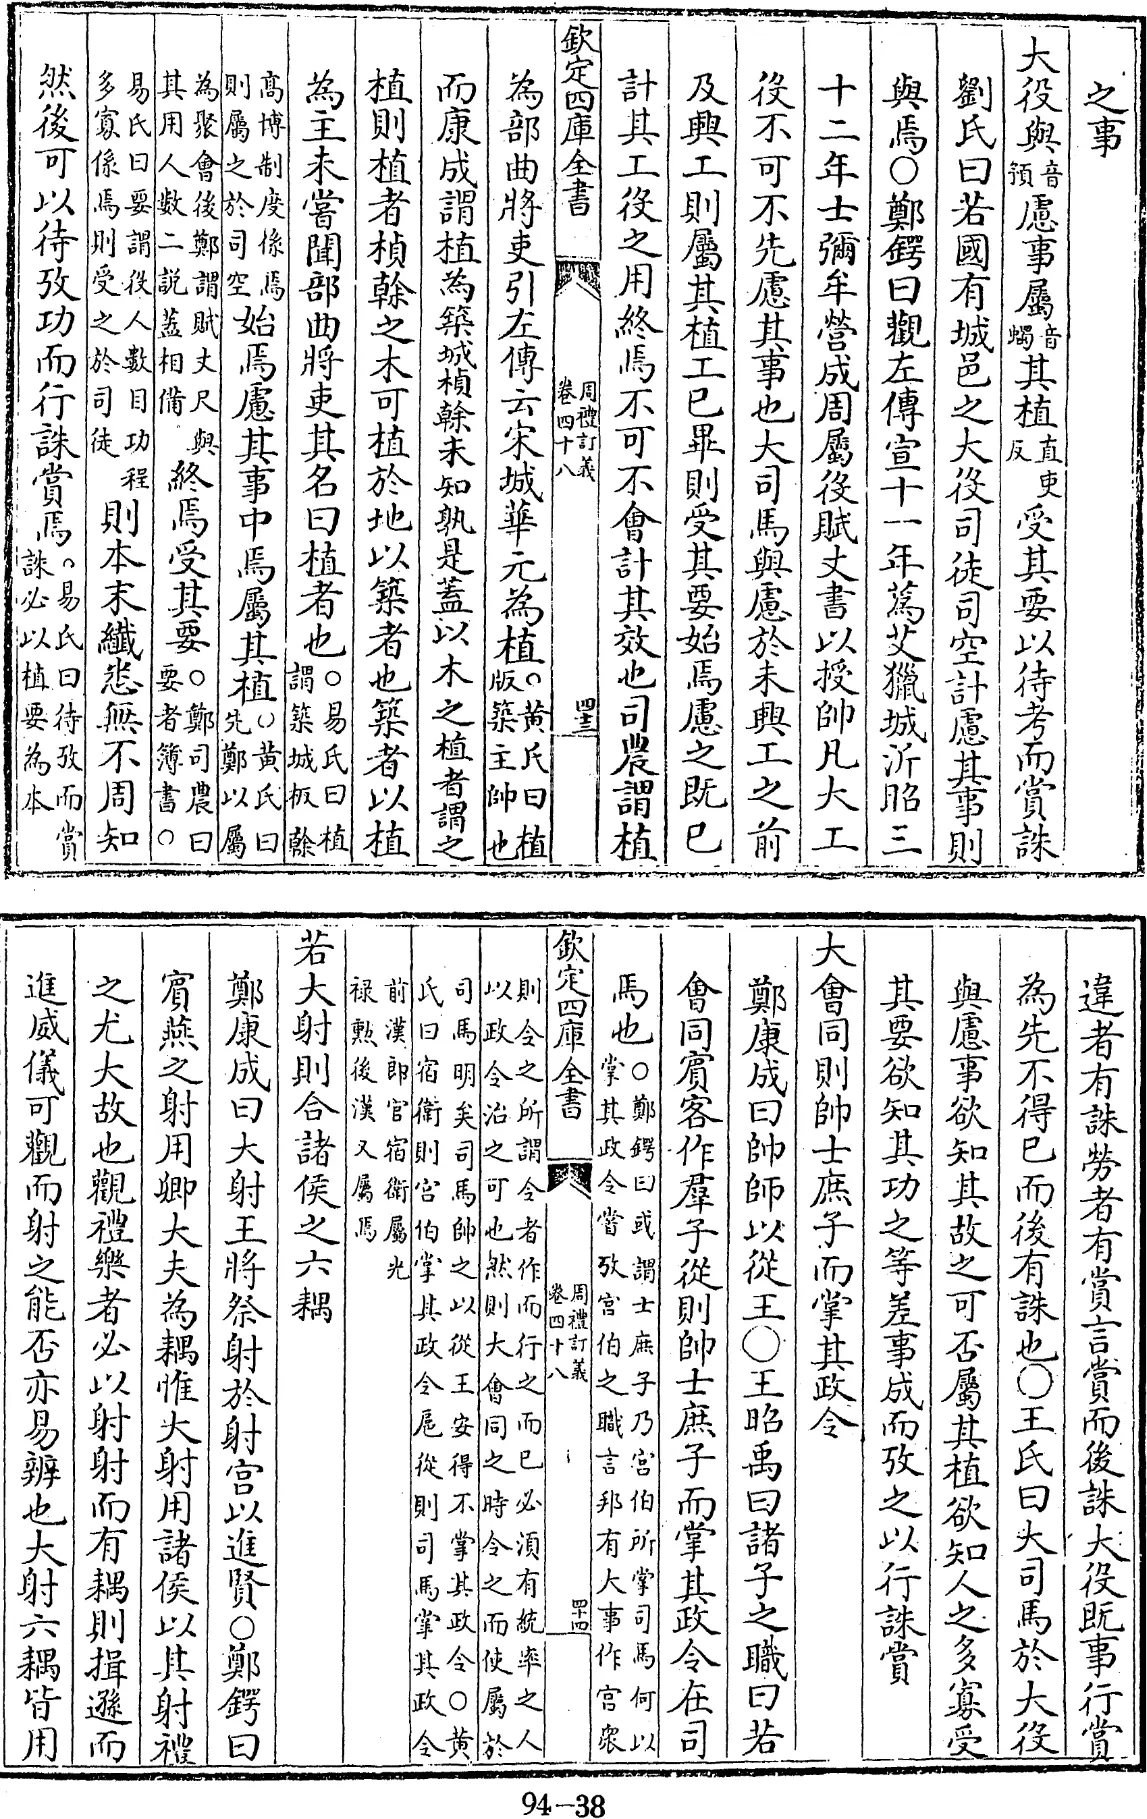 之事
大役與音預慮事屬音蠋其植直吏反受其要以待考而賞誅
劉氏曰若國有城邑之大役司徒司空計慮其事則
與焉○鄭鍔曰觀左傳宣十一年蔿艾獵城沂昭三
十二年士彌牟營成周屬役賦丈書以授帥凡大工
役不可不先慮其事也大司馬與慮於未興工之前
及興工則屬其植工已畢則受其要始焉慮之既已
計其工役之用終焉不可不會計其效也司農謂植
欽定四庫全書 周禮訂義卷四十八 四十三
為部曲將吏引左傳云宋城華元為植○黃氏曰植版築主帥也
而康成謂植為築城楨榦未知孰是蓋以木之植者謂之
植則植者楨榦之木可植於地以築者也築者以植
為主未嘗聞部曲將吏其名曰植者也○易氏曰植謂築城板榦
高博制度係焉則屬之於司空始焉慮其事中焉屬其植○黃氏曰先鄭以屬
為聚會後鄭謂賦丈尺與其用人數二説蓋相備終焉受其要○鄭司農曰要者簿書○
易氏曰要謂役人數目功程多寡係焉則受之於司徒則本末纖悉無不周知
然後可以待攷功而行誅賞焉○易氏曰待攷而賞誅必以植要為本
違者有誅勞者有賞言賞而後誅大役既事行賞
為先不得已而後有誅也○王氏曰大司馬於大役
與慮事欲知其故之可否屬其植欲知人之多寡受
其要欲知其功之等差事成而攷之以行誅賞
大會同則帥士庶子而掌其政令
鄭康成曰帥師以從王○王昭禹曰諸子之職曰若
會同賓客作羣子從則帥士庶子而掌其政令在司
馬也○鄭鍔曰或謂士庶子乃宮伯所掌司馬何以掌其政令嘗攷宮伯之職言邦有大事作宮衆
欽定四庫全書 周禮訂義卷四十八 四十四
則令之所謂令者作而行之而已必須有統率之人以政令治之可也然則大會同之時令之而使屬於
司馬明矣司馬帥之以從王安得不掌其政令○黃氏曰宿衛則宮伯掌其政令扈從則司馬掌其政令
前漢郎官宿衛屬光祿勲後漢又屬焉
若大射則合諸侯之六耦
鄭康成曰大射王將祭射於射宮以進賢○鄭鍔曰
賓燕之射用卿大夫為耦惟大射用諸侯以其射禮
之尤大故也觀禮樂者必以射射而有耦則揖遜而
進威儀可觀而射之能否亦易辨也大射六耦皆用
94-38